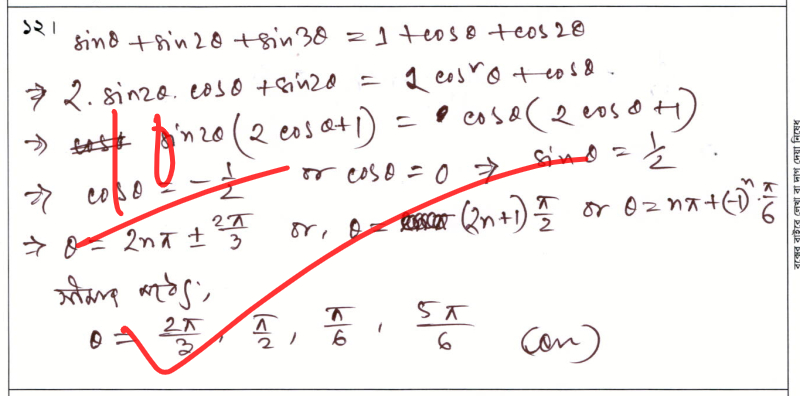 ১২।
sinθ + sin2θ + sin3θ = 1 + cosθ + cos2θ
⇒ 2. sin2θ. cosθ + sin2θ = 2 cos²θ + cosθ.
⇒ sin2θ (2 cosθ+1) = cosθ (2 cosθ+1)
⇒ cosθ = -1/2 or cosθ = 0 ⇒ sinθ = 1/2
⇒ θ = 2nπ ± 2π/3 or, θ = (2n+1) π/2 or θ = nπ + (-1)ⁿ. π/6
θ = 2π/3, π/2, π/6, 5π/6 (Ans)
10
বক্সের বাইরে লেখা বা দাগ দেয়া নিষেধ